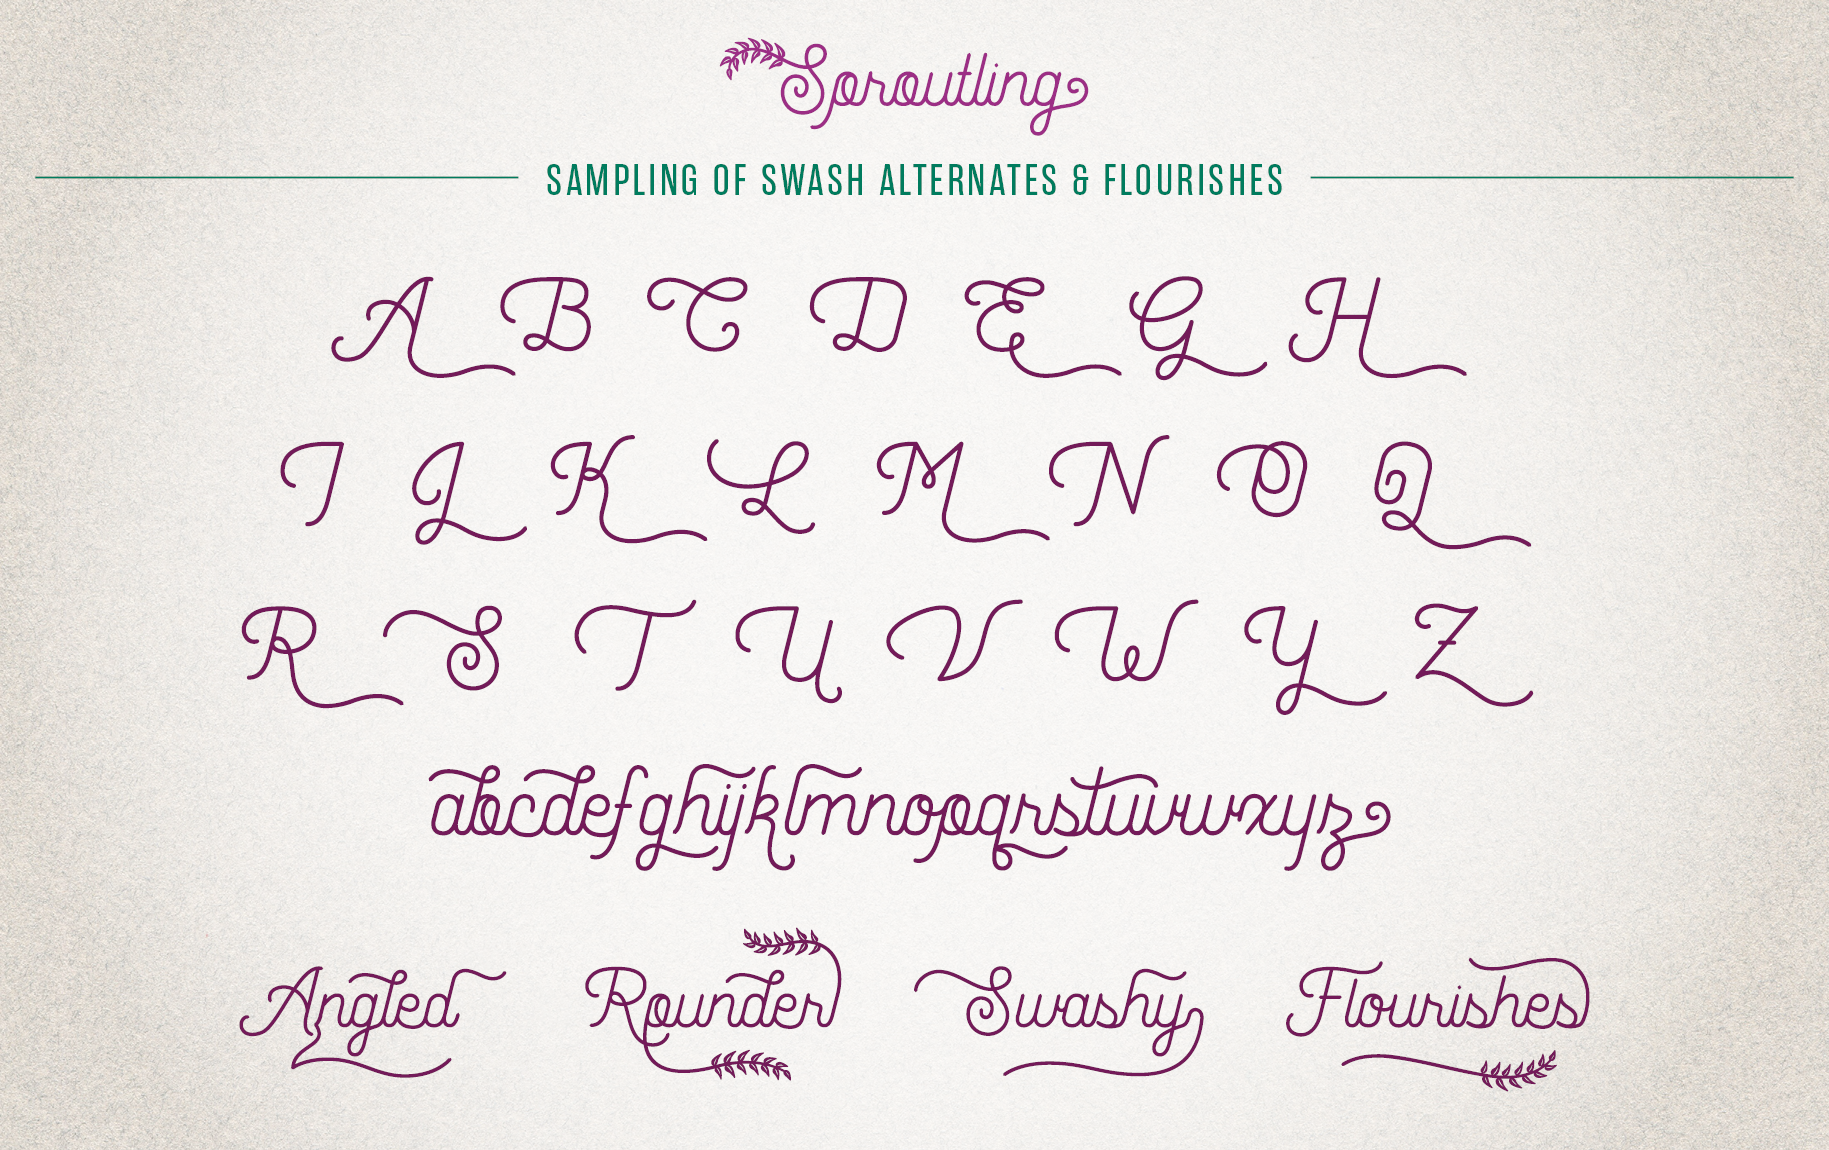 Sproutling
SAMPLING OF SWASH ALTERNATES & FLOURISHES
A B C D E G H
I J K L M N O Q
R S T U V W Y Z
abcdefghijklmnopqrstuvwxyz
Angled Rounder Swashy Flourishes